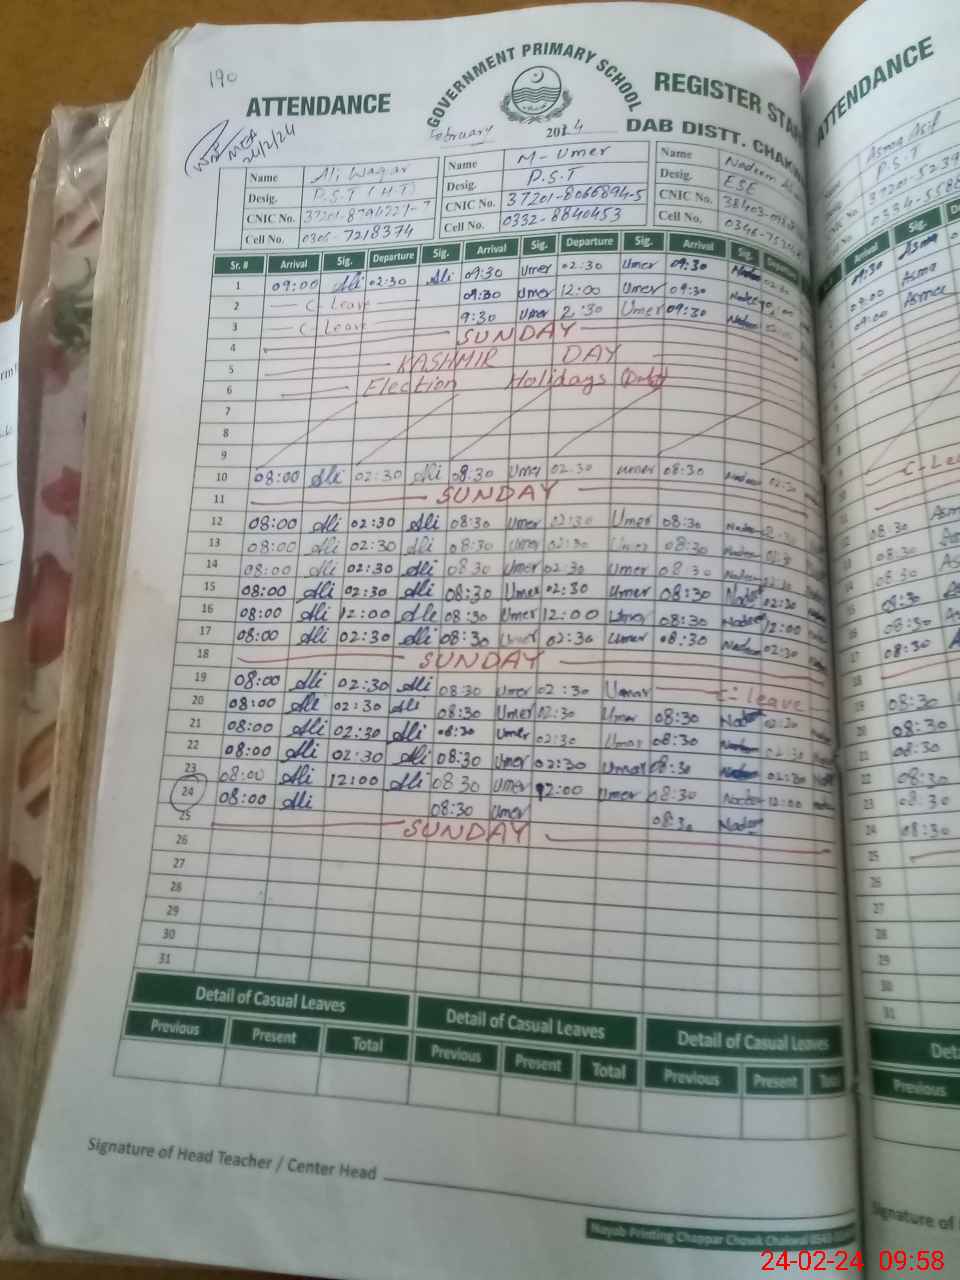 190
ATTENDANCE
GOVERNMENT PRIMARY SCHOOL
REGISTER STA
DAB DISTT. CHAK
February 2024
MEA
24/2/24
Name Ali Waqar
Desig. P.S.T (H.T)
CNIC No.
Cell No. 0306-7218374
Name M-Umer
Desig. P.S.T
CNIC No. 37201-8066894-5
Cell No. 0332-8840453
Name Nadeem
Desig. ESE
CNIC No.
Cell No.
Sr. # Arrival Sig. Departure Sig. Arrival Sig. Departure Sig. Arrival Sig. Departure
1 09:00 Ali 02:30 Ali 09:30 Umer 02:30 Umer 09:30 Nadeem
2 C-Leave 09:30 Umer 12:00 Umer 09:30 Nadeem
3 C-Leave 9:30 Umer 2:30 Umer 09:30 Nadeem
4 SUNDAY
5 KASHMIR DAY
6 Election Holidays
7
8
9
10 08:00 Ali 02:30 Ali 08:30 Umer 02:30 Umer 08:30 Nadeem 02:30
11 SUNDAY
12 08:00 Ali 02:30 Ali 08:30 Umer 02:30 Umer 08:30 Nadeem 02:30
13 08:00 Ali 02:30 Ali 08:30 Umer 02:30 Umer 08:30 Nadeem 02:30
14 08:00 Ali 02:30 Ali 08:30 Umer 02:30 Umer 08:30 Nadeem 02:30
15 08:00 Ali 02:30 Ali 08:30 Umer 02:30 Umer 08:30 Nadeem 02:30
16 08:00 Ali 12:00 Ali 08:30 Umer 12:00 Umer 08:30 Nadeem 12:00
17 08:00 Ali 02:30 Ali 08:30 Umer 02:30 Umer 08:30 Nadeem 02:30
18 SUNDAY
19 08:00 Ali 02:30 Ali 08:30 Umer 02:30 Umar C-Leave
20 08:00 Ali 02:30 Ali 08:30 Umer 02:30 Umer 08:30 Nadeem 02:30
21 08:00 Ali 02:30 Ali 08:30 Umer 02:30 Umar 08:30 Nadeem 02:30
22 08:00 Ali 02:30 Ali 08:30 Umer 02:30 Umar 08:30 Nadeem 02:30
23 08:00 Ali 12:00 Ali 08:30 Umer 12:00 Umer 08:30 Nadeem 12:00
24 08:00 Ali 08:30 Umer 08:30 Nadeem
25 SUNDAY
26
27
28
29
30
31
Detail of Casual Leaves Detail of Casual Leaves Detail of Casual Leaves
Previous Present Total Previous Present Total Previous Present Total
Signature of Head Teacher / Center Head
Nayab Printing Chappar Chowk Chakwal
ATTENDANCE
Asma Asif
P.S.T
Arrival Sig.
09:30 Asma
09:00 Asma
09:00 Asma
C-Le
08:30 Asm
08:30
08:30
08:30
08:30
08:30
08:30
08:30
08:30
08:30
08:30
08:30
Previous
Signature of
24-02-24 09:58